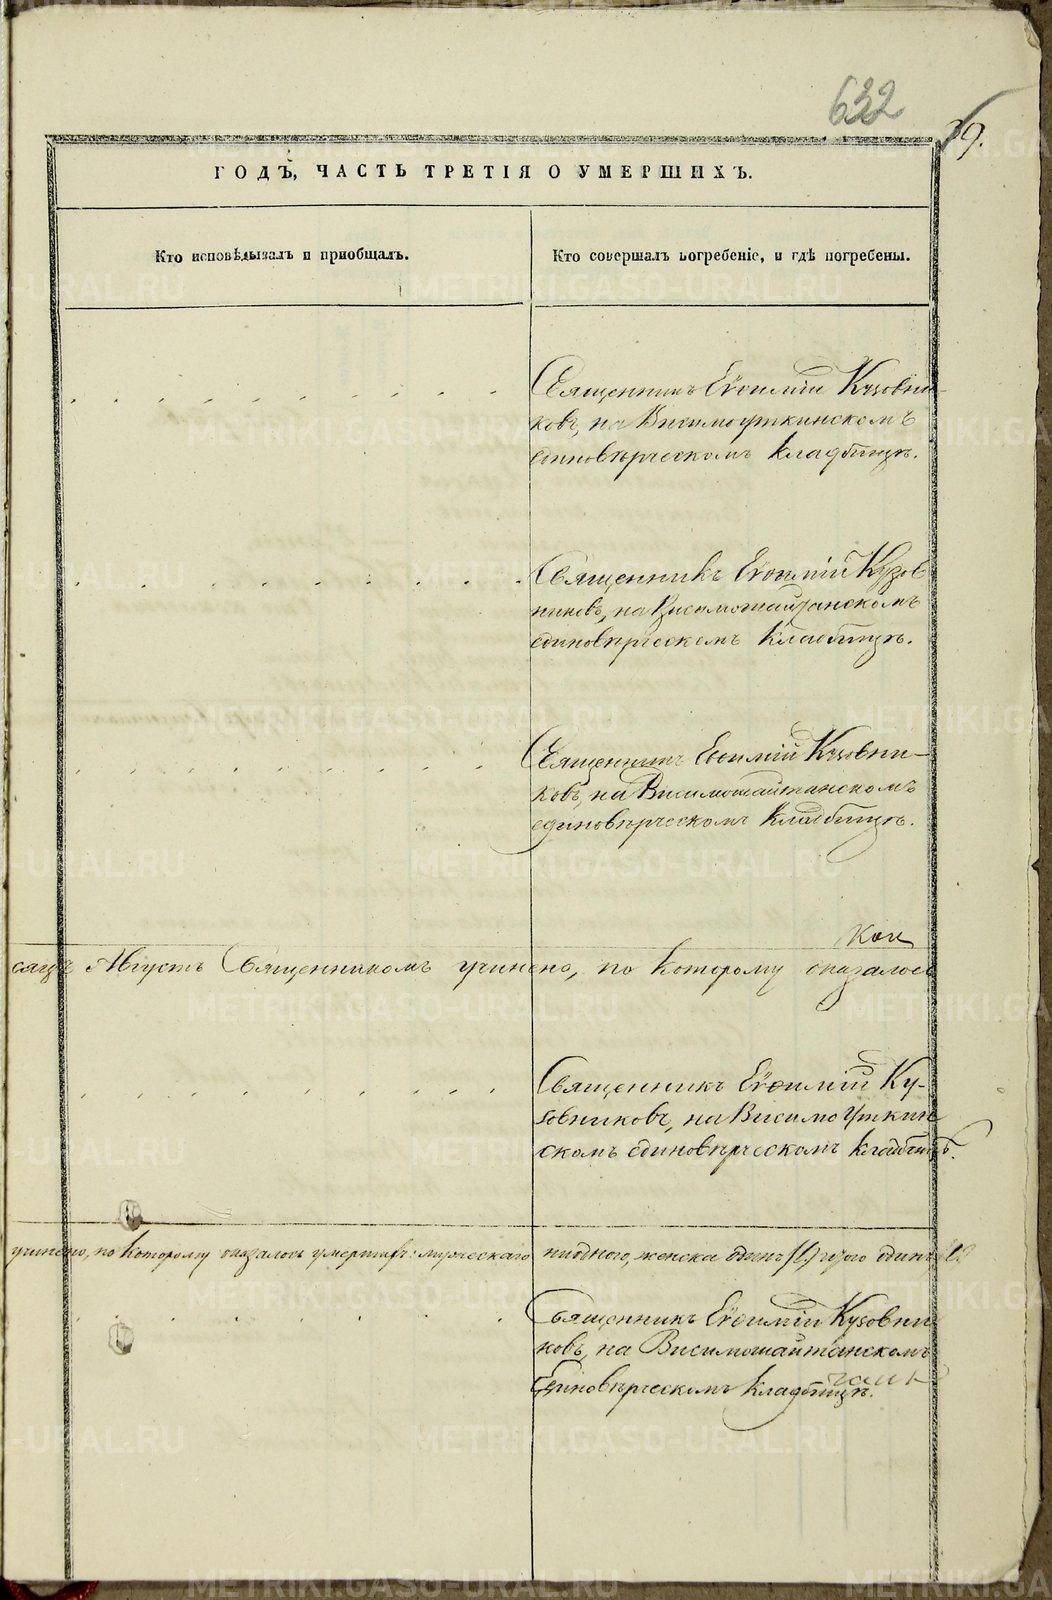 632
39.
ГОДЪ, ЧАСТЬ ТРЕТІЯ О УМЕРШИХЪ.
Кто исповѣдывалъ и пріобщалъ.
Кто совершалъ погребеніе, и гдѣ погребены.
Священникъ Евѳимій Кузовни-
ковъ, на Висимоуткинскомъ
единовѣрческомъ кладбищѣ.
Священникъ Евѳимій Кузов
никовъ, на Висимошайтанскомъ
единовѣрческомъ кладбищѣ.
Священникъ Евѳимій Кузовни-
ковъ, на Висимошайтанскомъ
единовѣрческомъ кладбищѣ.
сяцъ Августъ Священникомъ учинено, по которому оказалось
Священникъ Евѳимій Ку-
зовниковъ, на Висимоуткин
скомъ единовѣрческомъ кладбищѣ.
учинено, по которому оказалось умершихъ: мужескаго ниоднаго, женска одинъ (1.) обоего одинъ (1.)
Священникъ Евѳимій Кузовни
ковъ, на Висимошайтанскомъ
Единовѣрческомъ кладбищѣ.
METRIKI.GASO-URAL.RU